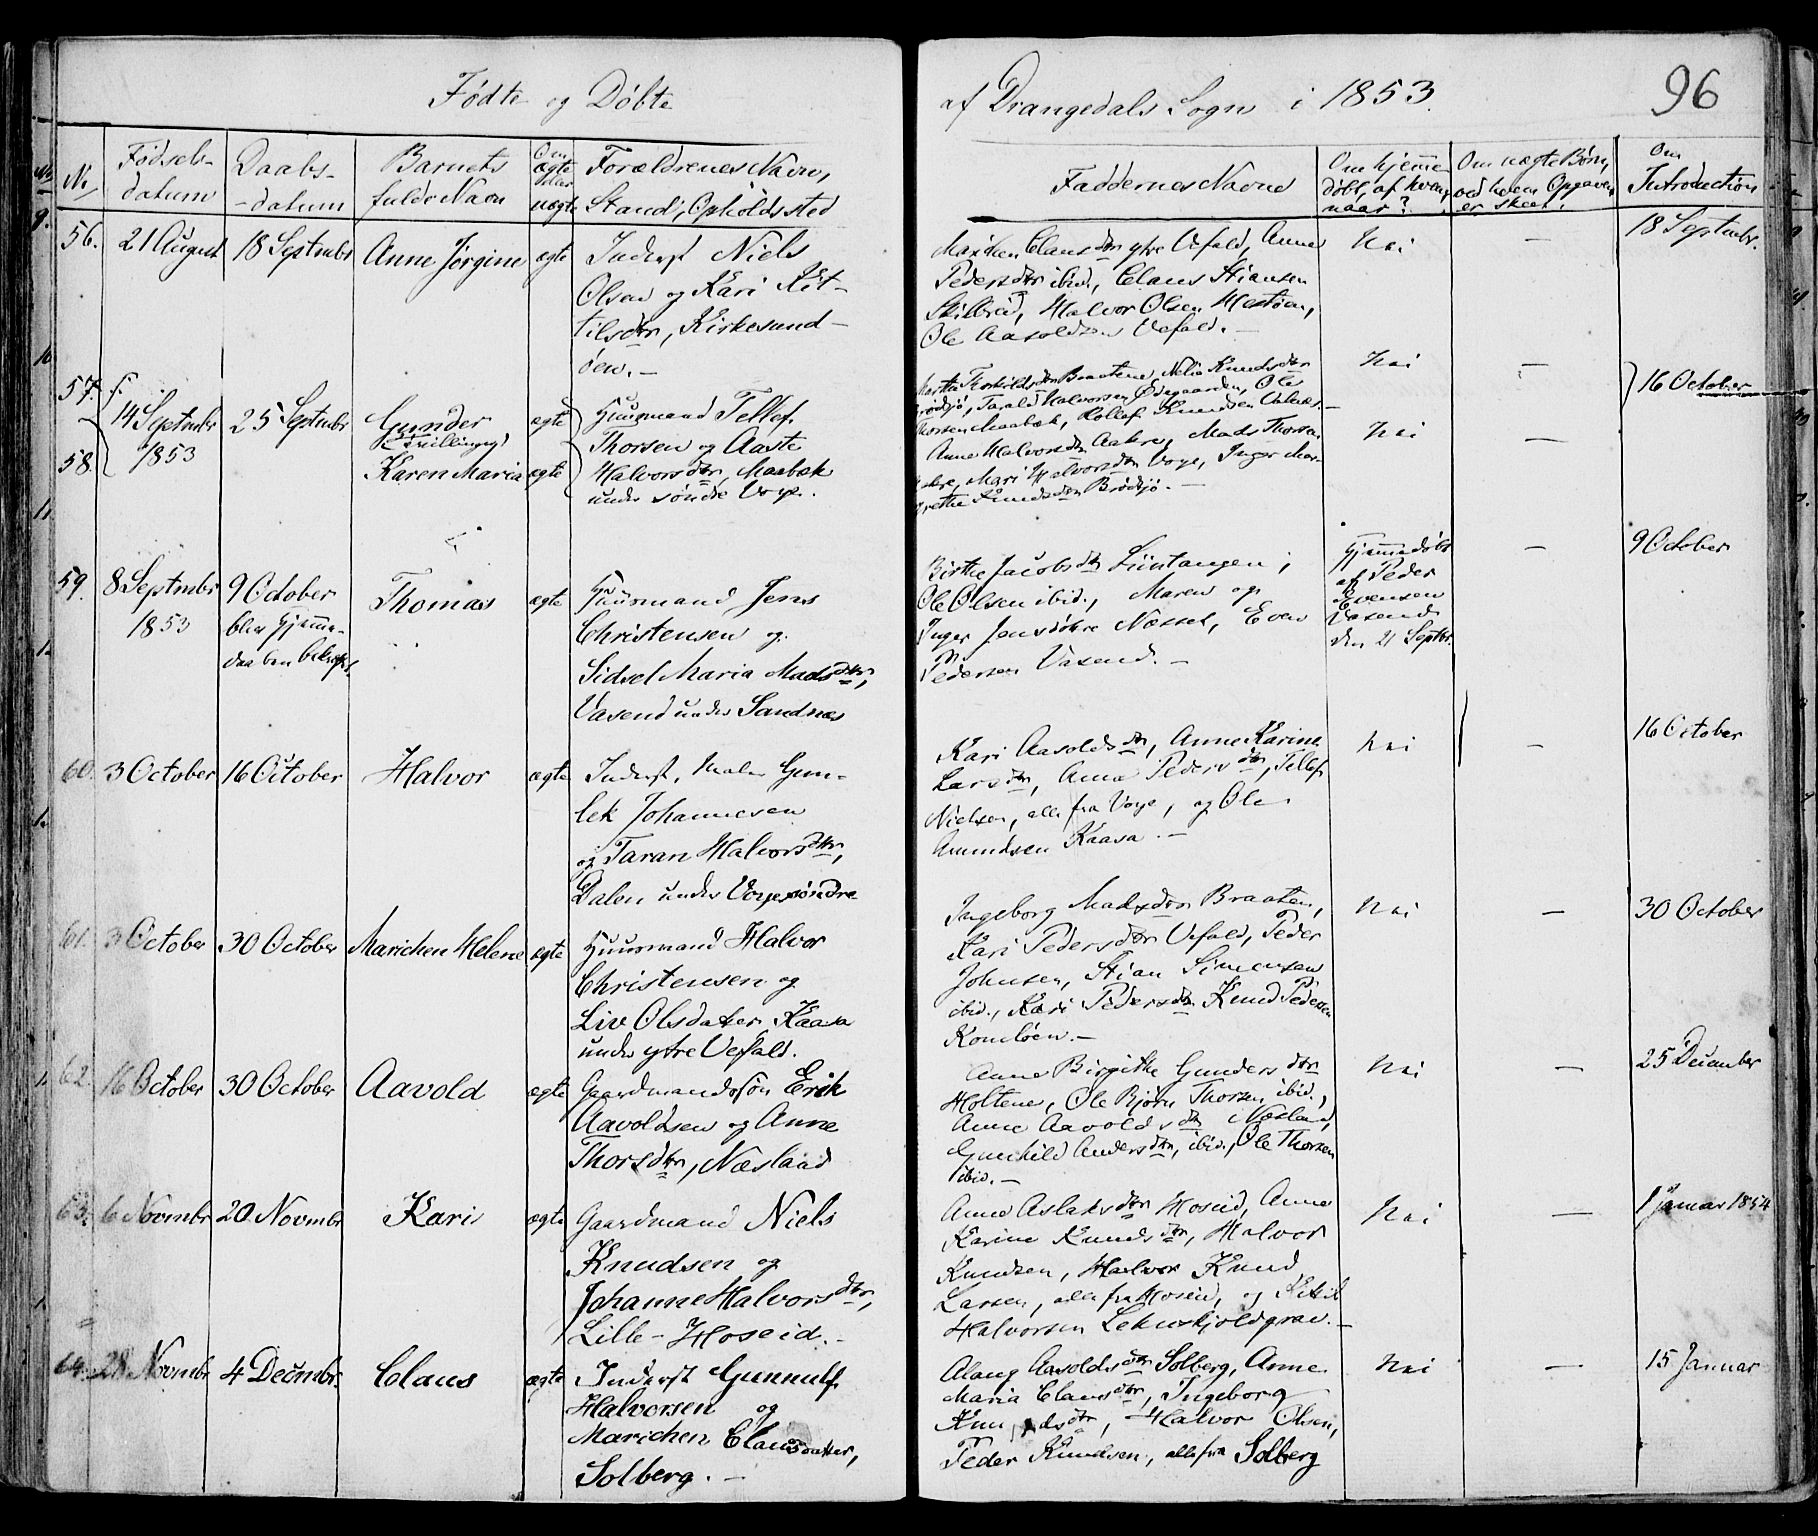 Fødte og Døbte
af Drangedals Sogn i 1853.
96
No
Fødsels-
datum
Daabs-
-datum
Barnets
fulde Navn
Om
ægte
eller
uægte
Forældrenes Navn,
Stand, Opholdssted
Faddernes Navne
Om hjemme
døbt, af hvem,
naar?
Om uægte Børn,
ved hvem Opgaven
er skeet.
Om
Introduction
56.
21 August
18 Septmbr
Anne Jørgine
ægte
Inderst Niels
Olsen og Kari Ket-
tilsdtr, Kirkesund-
øen. -
Marichen Clausdtr ytre Vefald, Anne
Pedersdtr ibid., Claus Stiansen
Skilbred, Halvor Olsen Hestøen,
Ole Aavoldsen Vefald. -
Nei
-
18 Septmbr.
57.
58.
14 Septmbr
1853
25 Septmbr
Gunder
(Tvillinger)
Karen Maria
ægte
ægte
Huusmand Tellef
Thorsen og Aaste
Halvorsdtr, Maabæk
under søndre Voje.
Thorkildsdtr Braatene, Nelia Knudsdtr
Brødsjø, Tarald Halvorsen Ødegaarden, Ole
Thorsen Maabæk, Rollef Knudsen
Anne Halvorsdtr Aakre, Mads Thorsen
Aakre, Mari Halvorsdtr Voje, Inger Mar-
grethe Knudsdtr Brødsjø. -
Nei
-
Nei
-
16 October
59.
8 Septmbr
1853
9 October
blev Hjemme-
daaben bekræftet
Thomas
ægte
Huusmand Jens
Christensen og
Sidsel Maria Madsdtr,
Vasend under Sandnæs
Birthe Jacobsdtr
Ole Olsen ibid., Maren og
Inger Jensdøtre Næsset, Even
Pedersen Vasend. -
Hjemmedøbt
af Peder
Evensen
Vasend
den 21 Septbr.
-
9 October
60.
3 October
16 October
Halvor
ægte
Inderst, Maler Gun-
lek Johannesen
og Taran Halvorsdtr,
Dalen under Voje søndre
Kari Aavoldsdtr, Anne Karine
Larsdtr, Anne Pedersdtr, Tellef
Nielsen, alle fra Voje, og Ole
Amundsen Kaasa. -
Nei
-
16 October
61.
3 October
30 October
Marichen Helene
ægte
Huusmand Halvor
Christensen og
Liv Olsdatter Kaasa
under ytre Vefald.
Ingeborg Madsdtr Braaten,
Kari Pedersdtr Vefald, Peder
Johnsen, Stian Simonsen
ibid., Kari Pedersdtr Knud Pedersen
Komløen. -
Nei
-
30 October
62.
16 October
30 October
Aavold
ægte
Gaardmandssøn Erik
Aavoldsen og Anne
Thorsdtr, Næsland
Anne Birgithe Gundersdtr
Holtene, Ole Bjørn Thorsen ibid.,
Anne Aavoldsdtr Næsland,
Gunhild Andersdtr, ibid., Ole Thorsen
ibid. -
Nei
-
25 December
63.
6 Novmbr
20 Novmbr
Kari
ægte
Gaardmand Niels
Knudsen og
Johanne Halvorsdtr,
Lille-Hoseid. -
Anne Aslaksdtr Hoseid, Anne
Karine Knudsdtr, Halvor
Knudsen, Halvor Knud
Larsen, alle fra Hoseid, og Kittil
Halvorsen Lekneskjoldgrav. -
Nei
-
1 Januar 1854
64.
28 Novmbr
4 Decmbr.
Claus
ægte
Inderst Gunnulf
Halvorsen og
Marichen Clausdatter,
Solberg. -
Aslaug Aavoldsdtr Solberg, Anne
Maria Clausdtr, Ingeborg
Knudsdtr, Halvor Olsen,
Peder Knudsen, alle fra Solberg
Nei
-
15 Januar